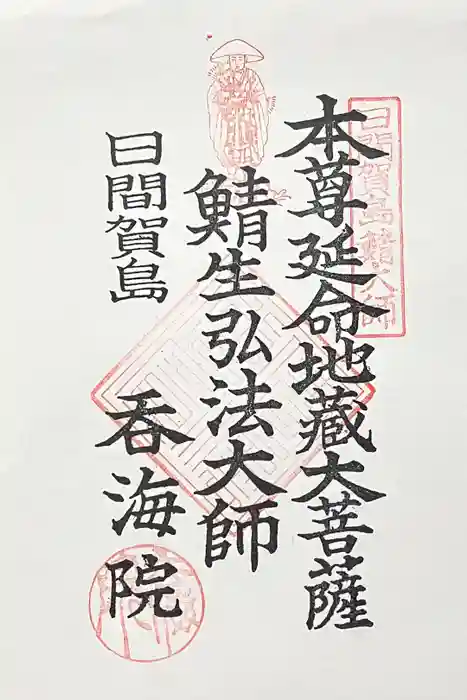 日間賀島鯖大師
本尊延命地藏大菩薩
鯖生弘法大師
日間賀島
呑海院